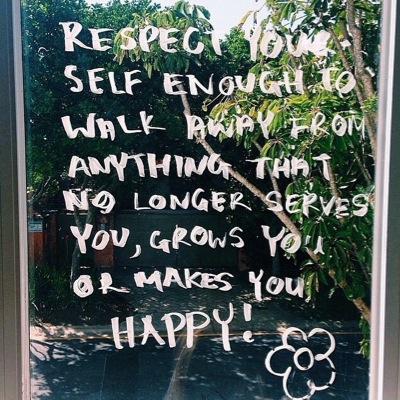 RESPECT YOUR-
SELF ENOUGH TO
WALK AWAY FROM
ANYTHING THAT
NO LONGER SERVES
YOU, GROWS YOU
OR MAKES YOU
HAPPY!